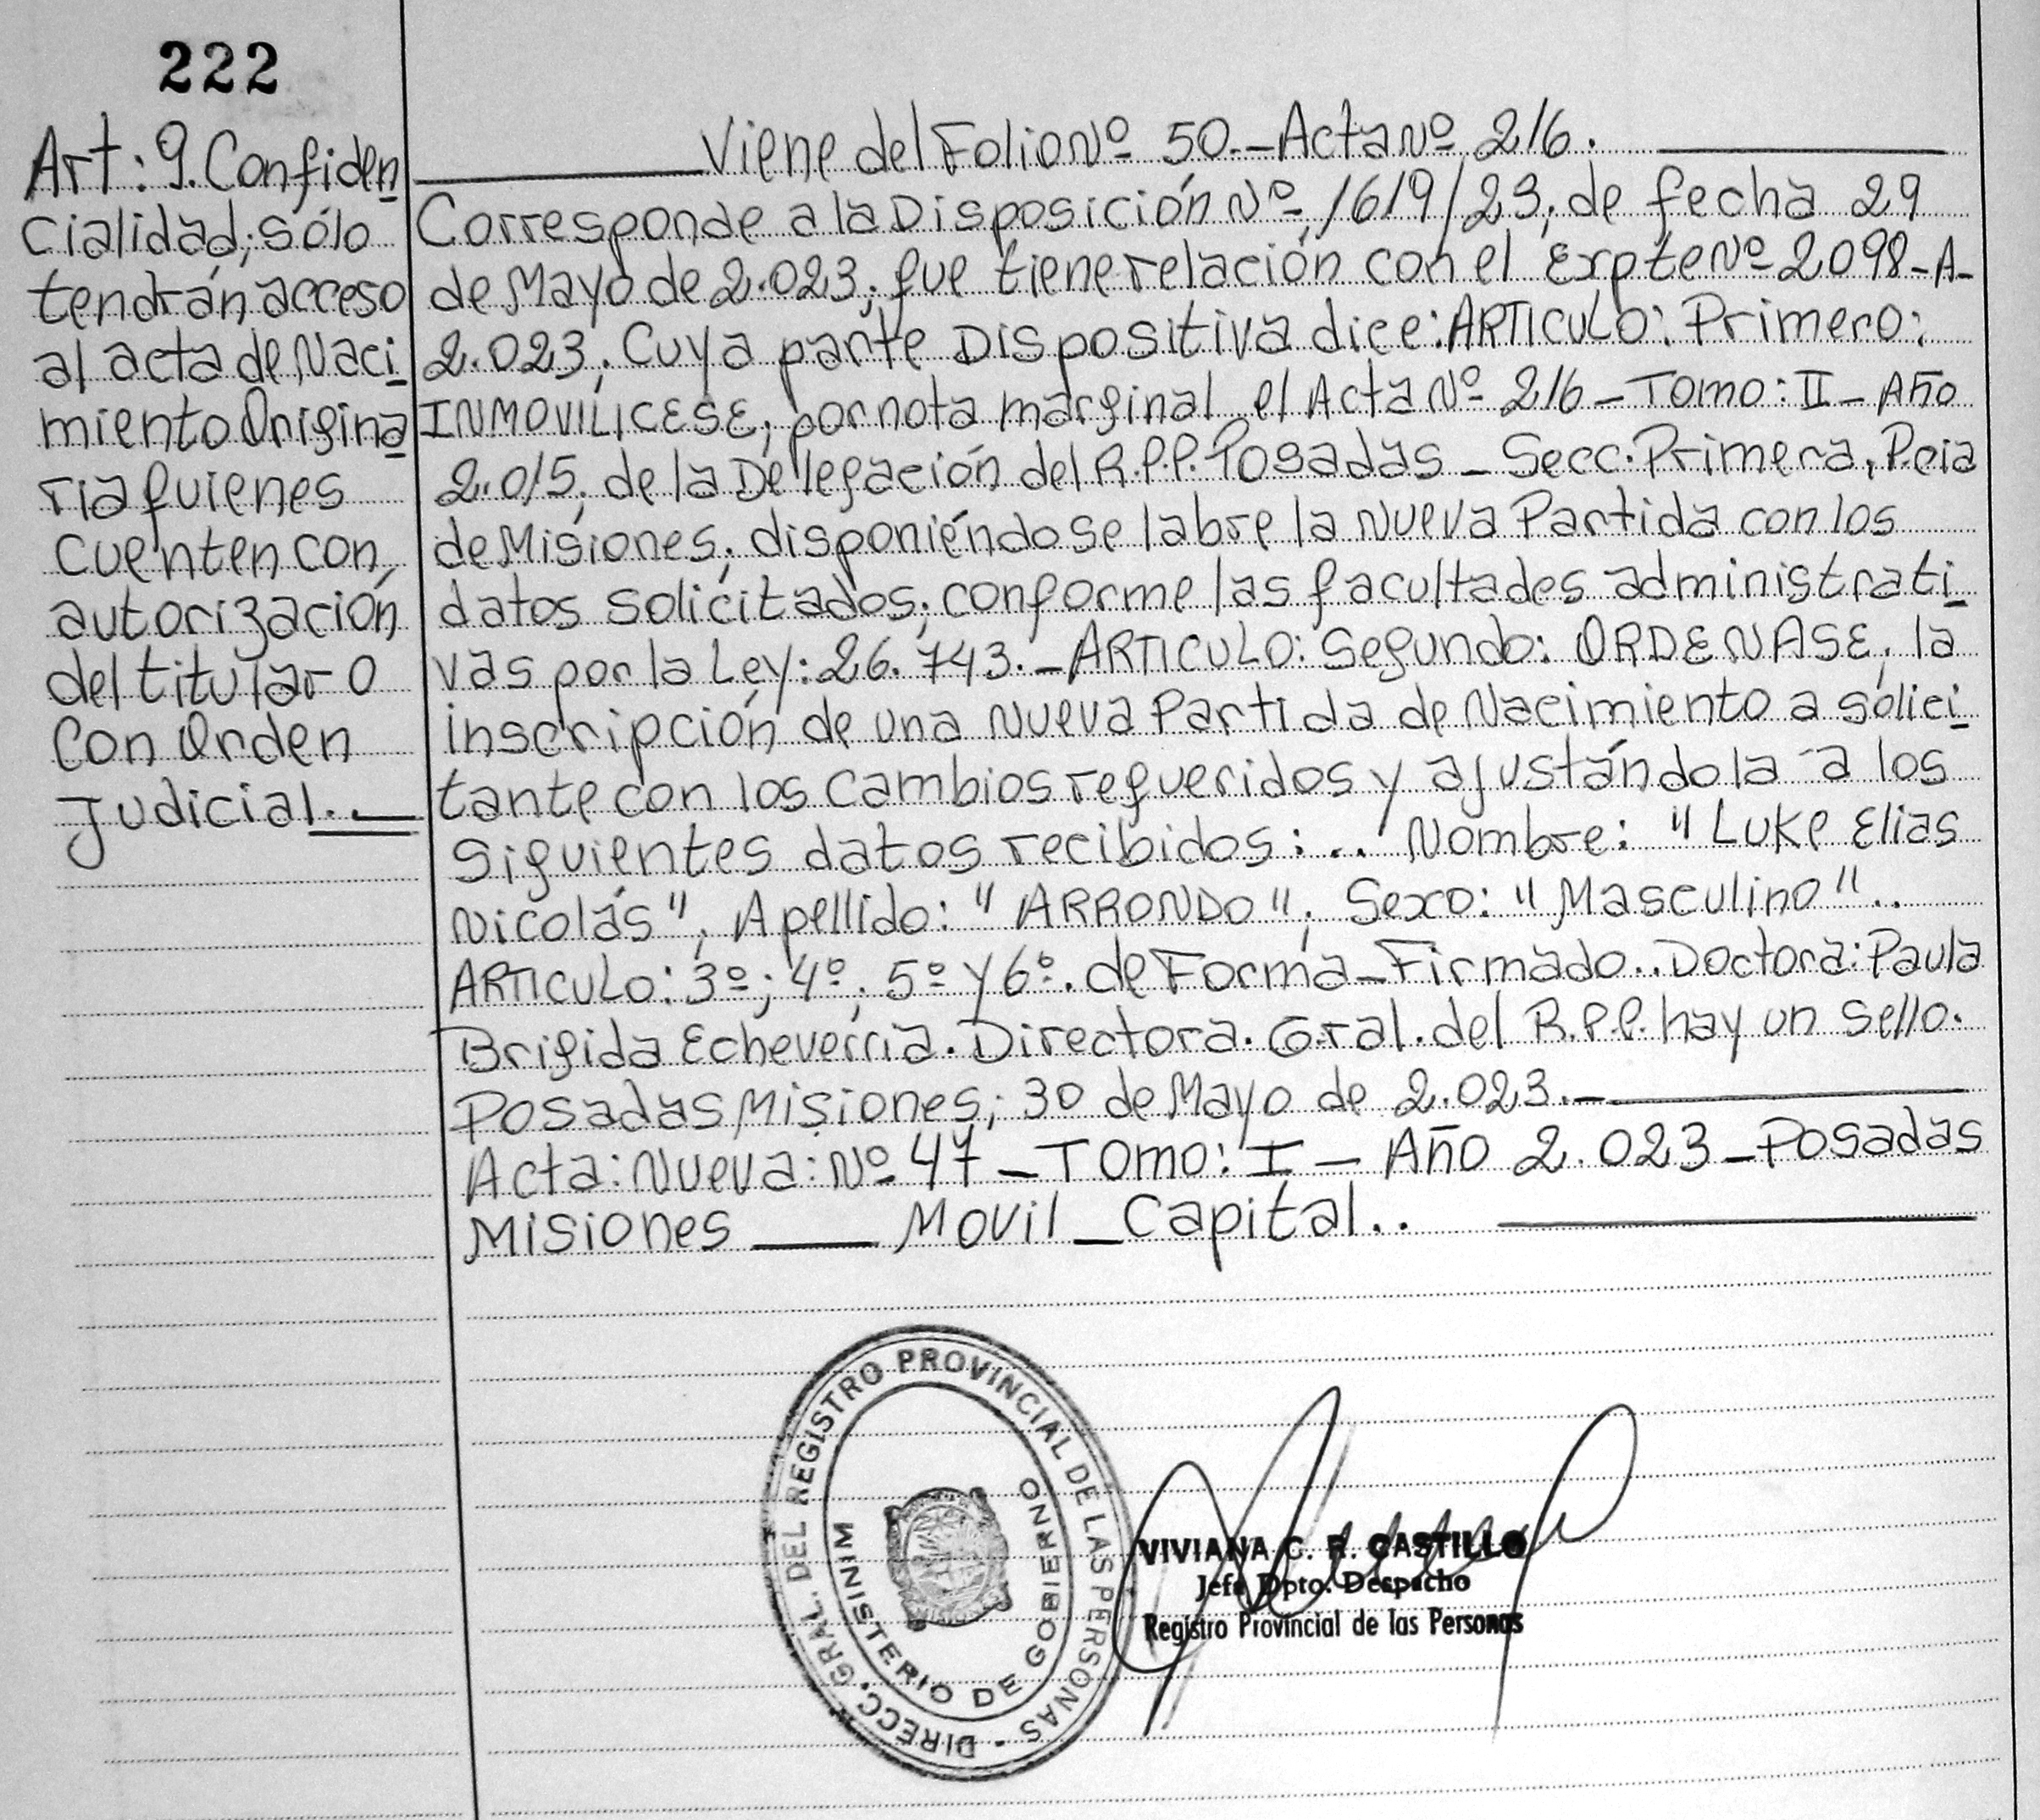 222
Art: 9. Confiden
cialidad; sólo
tendrán acceso
al acta de Naci
miento Origina
ria quienes
cuenten con
autorización
del titular o
Con Orden
Judicial..
Viene del Folio Nº 50.- Acta Nº 216.
Corresponde a la Disposición Nº 1619/23, de fecha 29
de Mayo de 2.023; que tiene relación con el Expte Nº 2098-A-
2.023; Cuya parte Dispositiva dice: ARTICULO: Primero:
INMOVILICESE; por nota marginal el Acta Nº 216 - Tomo: II - Año
2.015; de la Delegación del R.P.P. Posadas - Secc. Primera, Pcia
de Misiones; disponiéndose labre la Nueva Partida con los
datos solicitados; conforme las facultades administrati
vas por la Ley: 26.743.- ARTICULO: Segundo: ORDENASE, la
inscripción de una Nueva Partida de Nacimiento a solici
tante con los cambios requeridos y ajustándola a los
siguientes datos recibidos: .. Nombre: "Luke Elias
Nicolás", Apellido: "ARRONDO"; Sexo: "Masculino"..
ARTICULO: 3º; 4º; 5º y 6º. de Forma - Firmado.. Doctora: Paula
Brigida Echeverria. Directora. Gral. del R.P.P. hay un sello.
Posadas Misiones; 30 de Mayo de 2.023.-
Acta: Nueva: Nº 47 - Tomo: I - Año 2.023 - Posadas
Misiones — Movil - Capital..
DIRECC. GRAL. DEL REGISTRO PROVINCIAL DE LAS PERSONAS
MINISTERIO DE GOBIERNO
VIVIANA C. R. CASTILLO
Jefe Dpto. Despacho
Registro Provincial de las Personas